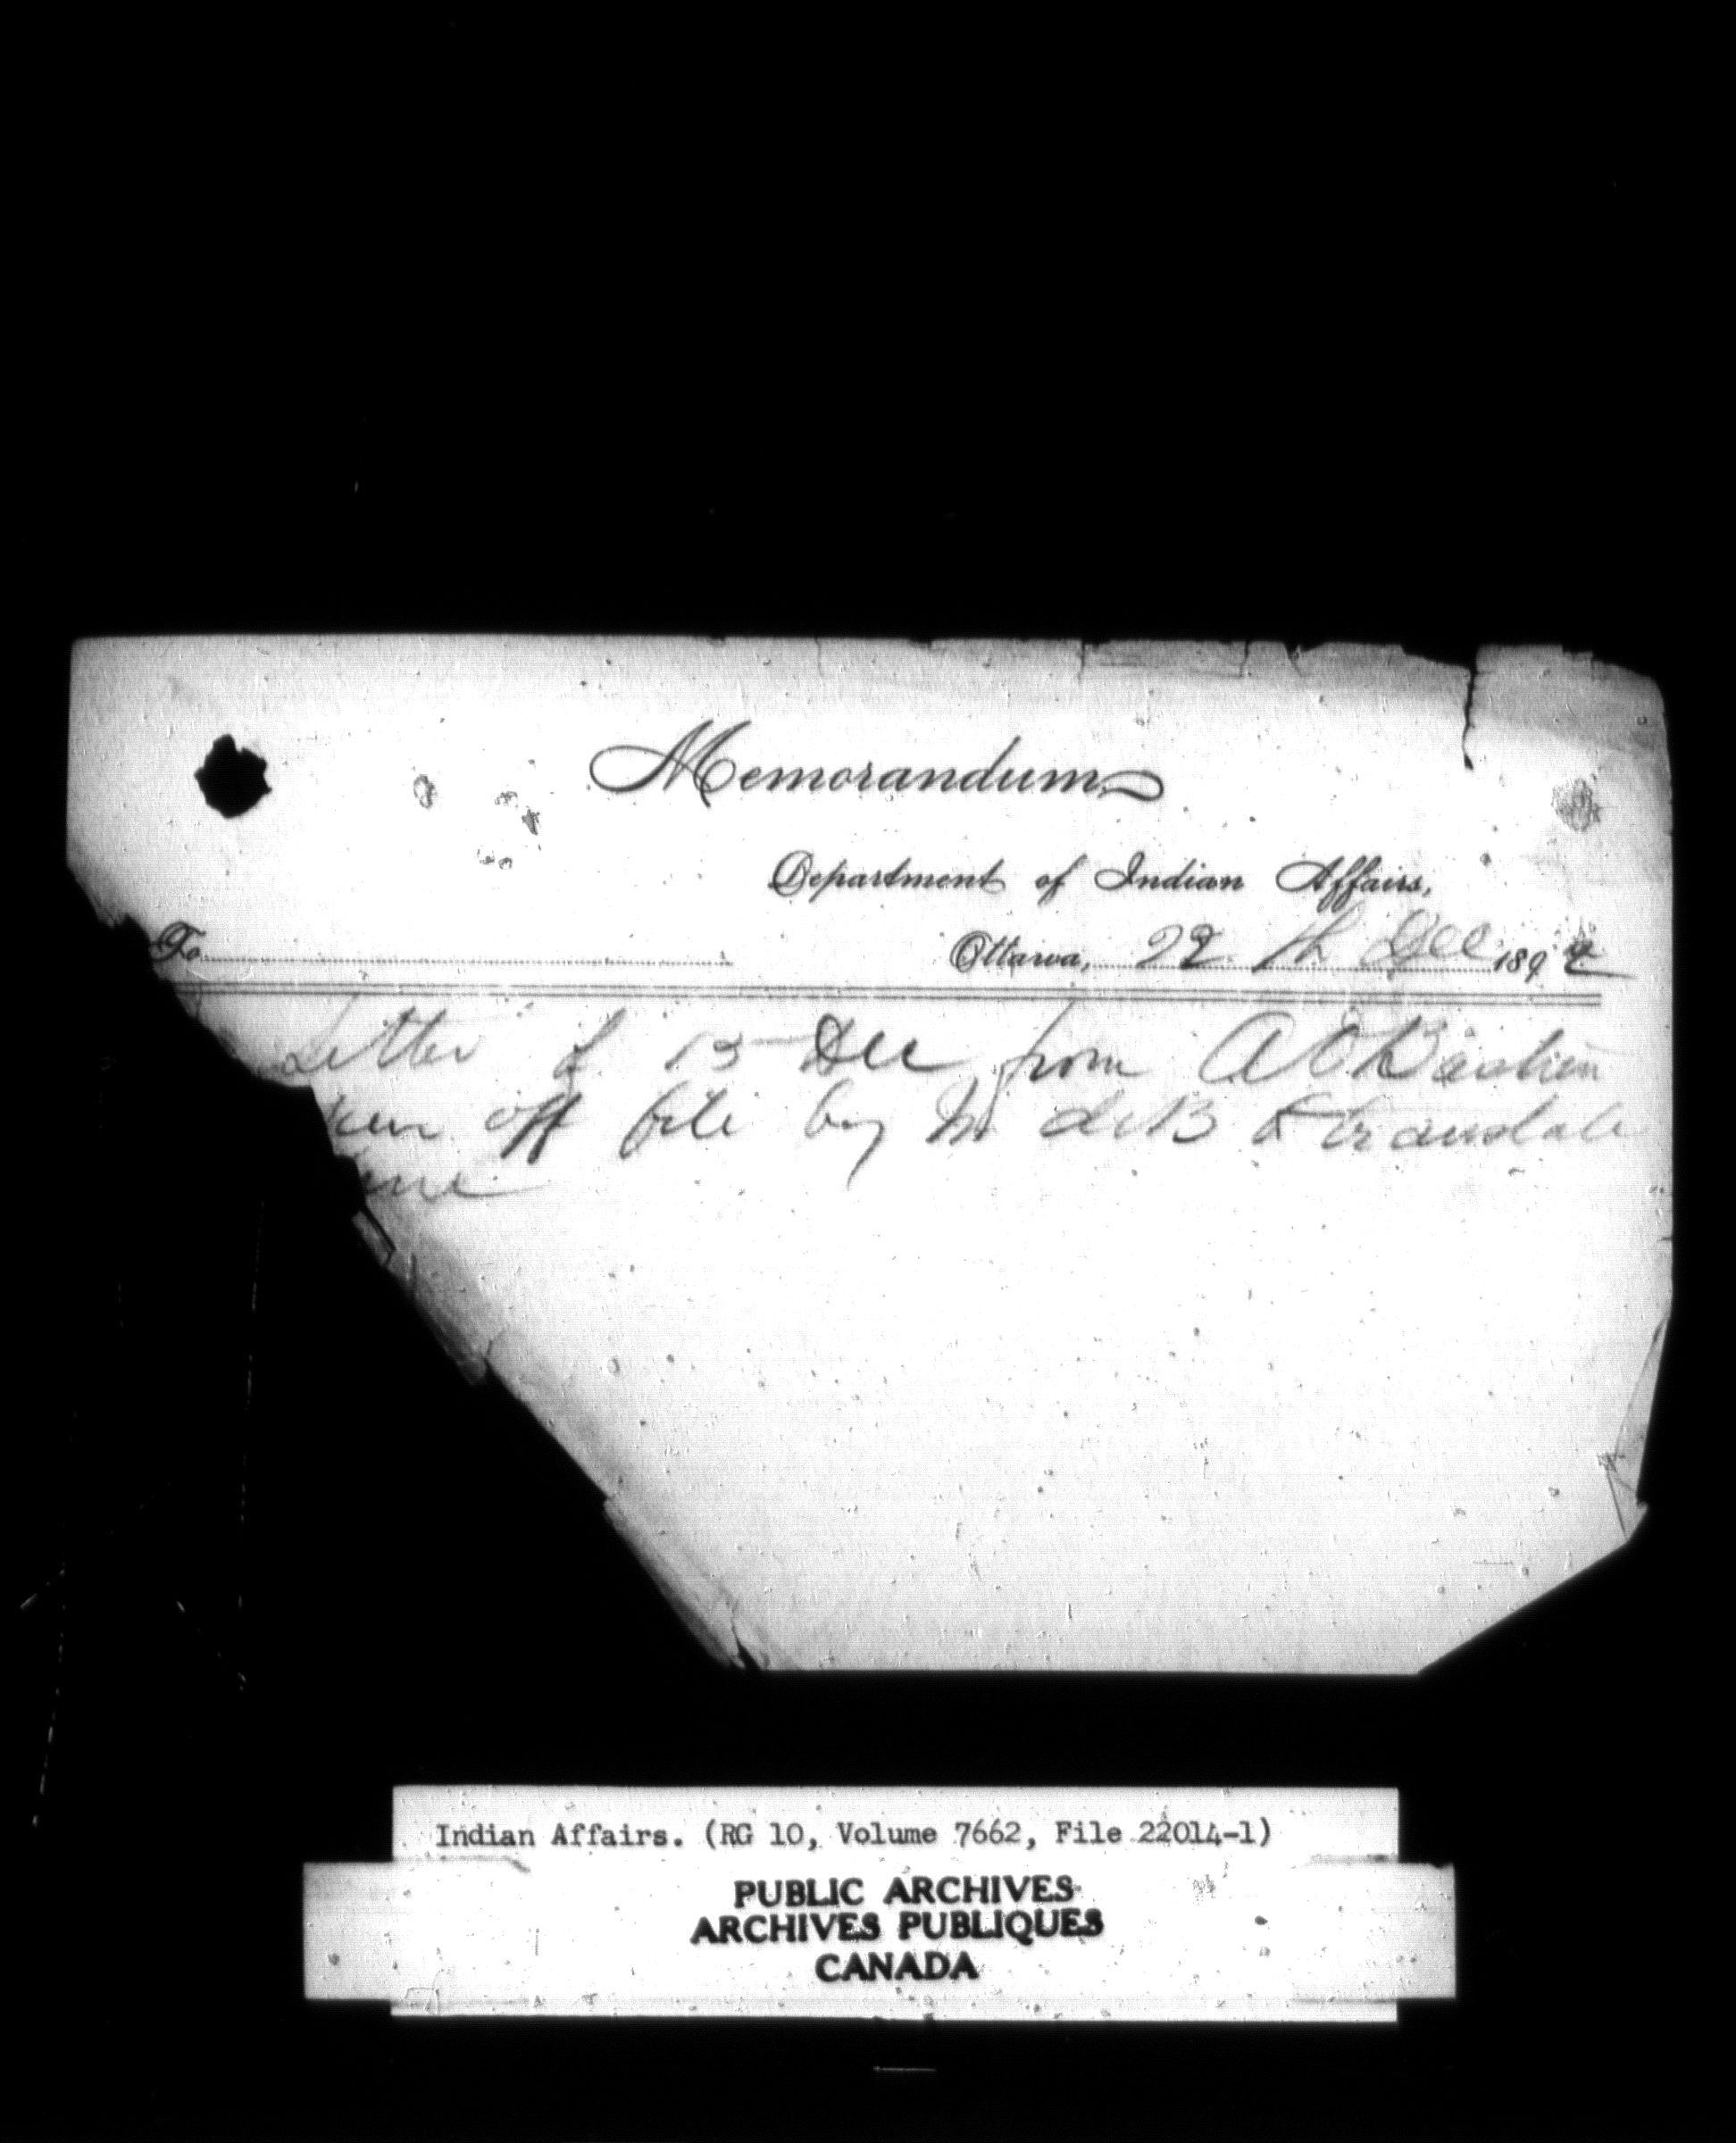 Memorandum
Department of Indian Affairs,
To Ottawa, 22 th Dec 189
Letter of 15 Dec from A O Bastien
ken off file by M deB & translate
ame
Indian Affairs. (RG 10, Volume 7662, File 22014-1)
PUBLIC ARCHIVES
ARCHIVES PUBLIQUES
CANADA